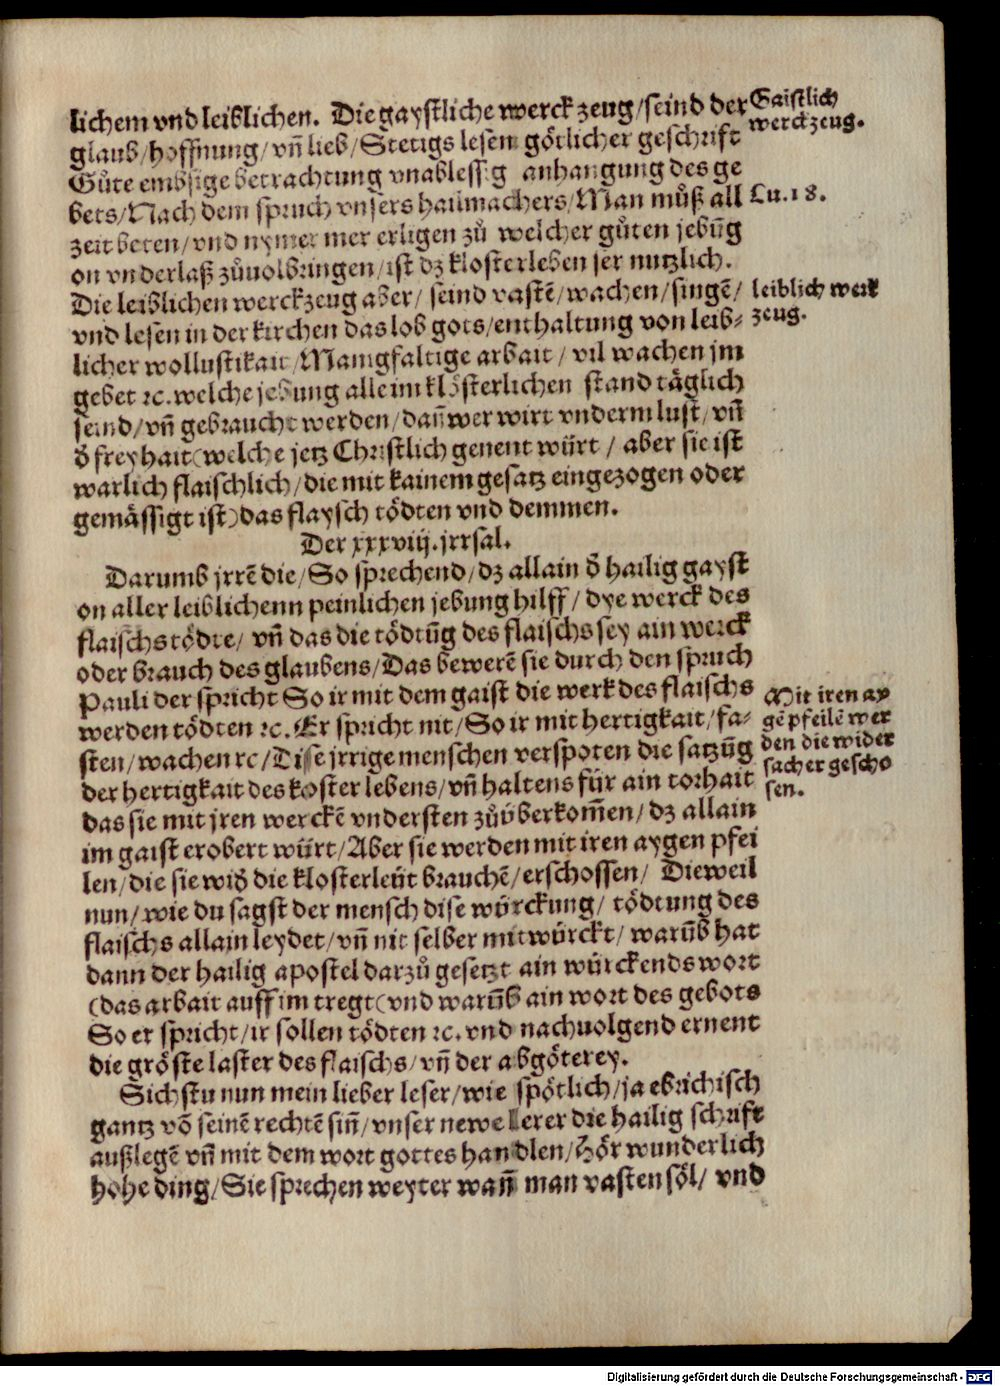 lichem vnd leiblichen. Die gaystliche werckzeug/seind der
glaub/hoffnung/vn̄ lieb/Stetigs lesen götlicher geschrift
Gůte embsige betrachtung vnablessig anhangung des ge
bets/Nach dem spruch vnsers hailmachers/Man můß all
zeit beten/vnd nymer mer erligen zů welcher gůten jebūg
on vnderlaß zůuolbringen/ist dz klosterleben ser nutzlich.
Die leiblichen werckzeug aber/ seind vastē/wachen/singē/
vnd lesen in der kirchen das lob gots/enthaltung von leib⸗
licher wollustikait/Manigfaltige arbait/ vil wachen jm
gebet ꝛc.welche jebung alle im klösterlichen stand täglich
seind/vn̄ gebraucht werden/dan̄ wer wirt vnderm lust/vn̄
d̄ freyhait(welche jetz Christlich genent würt/ aber sie ist
warlich flaischlich/die mit kainem gesatz eingezogen oder
gemässigt ist)das flaysch tödten vnd demmen.
Der xxxviij.jrrsal.
Darumb jrrē die/So sprechend/dz allain d̄ hailig gayst
on aller leiblichenn peinlichen jebung hilff/ dye werck des
flaischs tödte/ vn̄ das die tödtūg des flaischs sey ain werck
oder brauch des glaubens/Das bewerē sie durch den spruch
Pauli der spricht So ir mit dem gaist die werk des flaischs
werden tödten ꝛc.Er spricht nit/So ir mit hertigkait/fa⸗
sten/wachen ꝛc/Dise jrrige menschen verspoten die satzūg
der hertigkait des koster lebens/vn̄ haltens für ain torhait
das sie mit jren werckē vndersten zůüberkom̄en/dz allain
im gaist erobert würt/Aber sie werden mit iren aygen pfei
len/die sie wid̄ die klosterleüt brauchē/erschossen/ Dieweil
nun/wie du sagst der mensch dise würckung/ tödtung des
flaischs allain leydet/vn̄ nit selber mitwürckt/warūb hat
dann der hailig apostel darzů gesetzt ain würckends wort
(das arbait auff im tregt(vnd warūb ain wort des gebots
So er spricht/ir sollen tödten ꝛc.vnd nachuolgend ernent
die gröste laster des flaischs/vn̄ der abgöterey.
Sichstu nun mein lieber leser/wie spötlich/ja ebrichisch
gantz vō seinē rechtē sin̄/vnser newe lerer die hailig schrift
außlegē vn̄ mit dem wort gottes handlen/Hör wunderlich
hohe ding/Sie sprechen weyter wan̄ man vasten söl/ vnd
Gaistlich
werckzeug.
Lu.18.
leiblich werk
zeug.
Mit iren ay
gē pfeilē wer
den die wider
sacher gescho
sen.
Digitalisierung gefördert durch die Deutsche Forschungsgemeinschaft - DFG